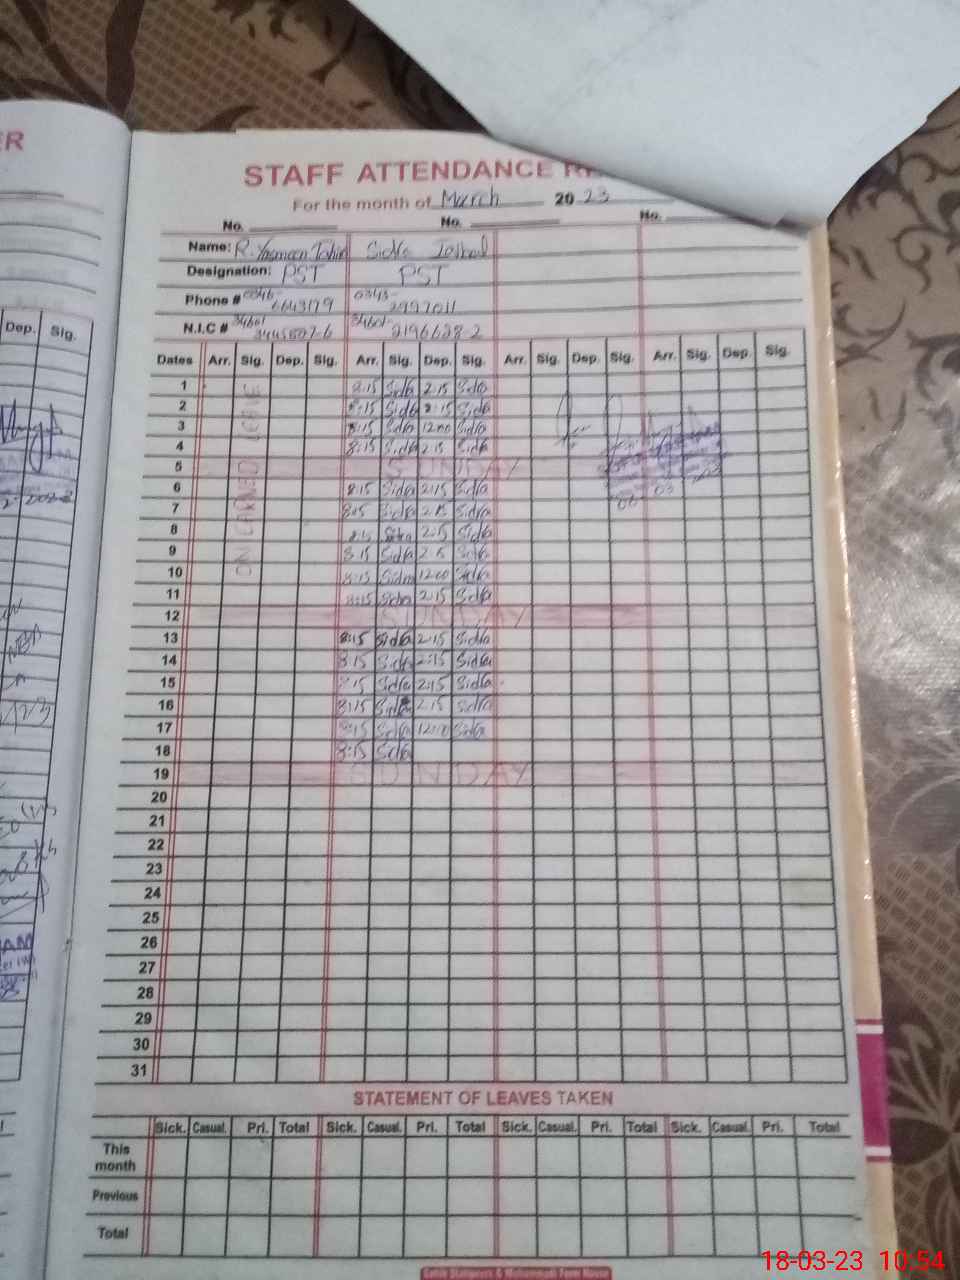 ER
STAFF ATTENDANCE
For the month of March 2023
No. No. No.
Name: R. Yasmeen Tahir Sidra
Designation: PST PST
Phone # 0346- 6643179 0343- 2997011
N.I.C # 34601 34601- 2196628-2
Dep. Sig.
Dates Arr. Sig. Dep. Sig. Arr. Sig. Dep. Sig. Arr. Sig. Dep. Sig. Arr. Sig. Dep. Sig.
ON EARNED LEAVE
1 8:15 Sidra 2:15 Sidra
2 8:15 Sidra 2:15 Sidra
3 8:15 Sidra 12:00 Sidra
4 8:15 Sidra 2:15 Sidra
5 SUNDAY
6 8:15 Sidra 2:15 Sidra
7 8:15 Sidra 2:15 Sidra
8 8:15 Sidra 2:15 Sidra
9 8:15 Sidra 2:15 Sidra
10 8:15 Sidra 12:00 Sidra
11 8:15 Sidra 2:15 Sidra
12 SUNDAY
13 8:15 Sidra 2:15 Sidra
14 8:15 Sidra 2:15 Sidra
15 8:15 Sidra 2:15 Sidra
16 8:15 Sidra 2:15 Sidra
17 8:15 Sidra 12:00 Sidra
18 8:15 Sidra
19 SUNDAY
20
21
22
23
24
25
26
27
28
29
30
31
STATEMENT OF LEAVES TAKEN
Sick. Casual. Pri. Total Sick. Casual. Pri. Total Sick. Casual. Pri. Total Sick. Casual. Pri. Total
This month
Previous
Total
18-03-23 10:54